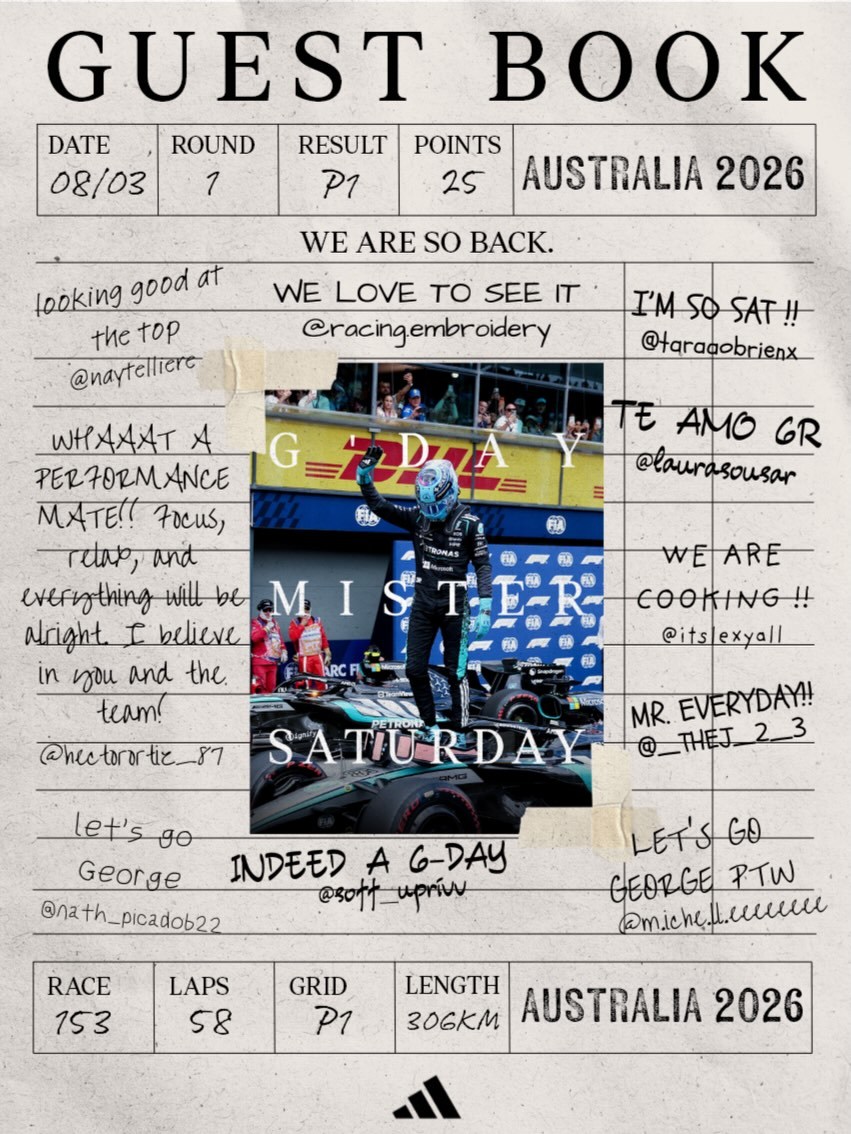 GUEST BOOK
DATE
08/03
ROUND
1
RESULT
P1
POINTS
25
AUSTRALIA 2026
WE ARE SO BACK.
looking good at
the top
@naytelliere
WE LOVE TO SEE IT
@racing.embroidery
I'M SO SAT !!
@taraaobrienx
TE AMO GR
@laurasousar
WHAAAT A
PERFORMANCE
MATE!! Focus,
relax, and
everything will be
alright. I believe
in you and the
team!
@hectorortiz_87
G'DAY
MISTER
SATURDAY
DHL
FIA
FIA
PETRONAS
Microsoft
ARC FI
PETRONAS
AMG
WE ARE
COOKING !!
@itslexyall
MR. EVERYDAY!!
@_THEJ_2_3
let's go
George
@nath_picado622
INDEED A G-DAY
@soft_uprivv
LET'S GO
GEORGE PTW
@m.iche.ll.eeeeeeee
RACE
153
LAPS
58
GRID
P1
LENGTH
306KM
AUSTRALIA 2026